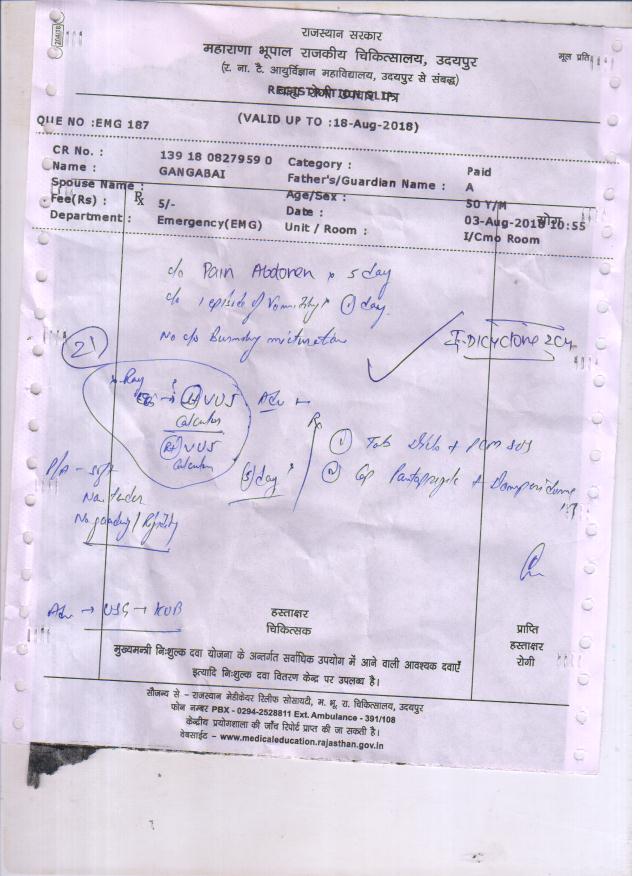 राजस्थान सरकार
महाराणा भूपाल राजकीय चिकित्सालय, उदयपुर
मूल प्रति
(र. ना. टै. आयुर्विज्ञान महाविद्यालय, उदयपुर से संबद्ध)
REGISTRATION SLIP
(VALID UP TO :18-Aug-2018)
QUE NO :EMG 187
CR No. : 139 18 0827959 0 Category : Paid
Name : GANGABAI Father's/Guardian Name : A
Spouse Name : Age/Sex : 50 Y/M
Fee(Rs) : 5/- Date : 03-Aug-2018 10:55
Department : Emergency(EMG) Unit / Room : I/Cmo Room
Rx
योग
c/o Pain Abdomen x 5 day
c/o 1 episode of Vomiting x 1 day.
No c/o Burning micturation
21
Dicyclone 2cc
X-Ray
(Lt) VUJ
Calculus
(Rt) VUJ
Calculus
Adv
Rx
1 Tab Diclo + PCM SOS
2 Cap Pantaprazole + Domperidome
5 day
P/A - soft
Non tender
No guarding / Rigidity
Adv → USG → KUB
हस्ताक्षर
चिकित्सक
प्राप्ति
हस्ताक्षर
रोगी
मुख्यमन्त्री निःशुल्क दवा योजना के अन्तर्गत सर्वाधिक उपयोग में आने वाली आवश्यक दवाएँ
इत्यादि निःशुल्क दवा वितरण केन्द्र पर उपलब्ध है।
सौजन्य से - राजस्थान मेडीकेयर रिलीफ सोसायटी, म. भू. रा. चिकित्सालय, उदयपुर
फोन नम्बर PBX - 0294-2528811 Ext. Ambulance - 391/108
केन्द्रीय प्रयोगशाला की जाँच रिपोर्ट प्राप्त की जा सकती है।
वेबसाईट - www.medicaleducation.rajasthan.gov.in